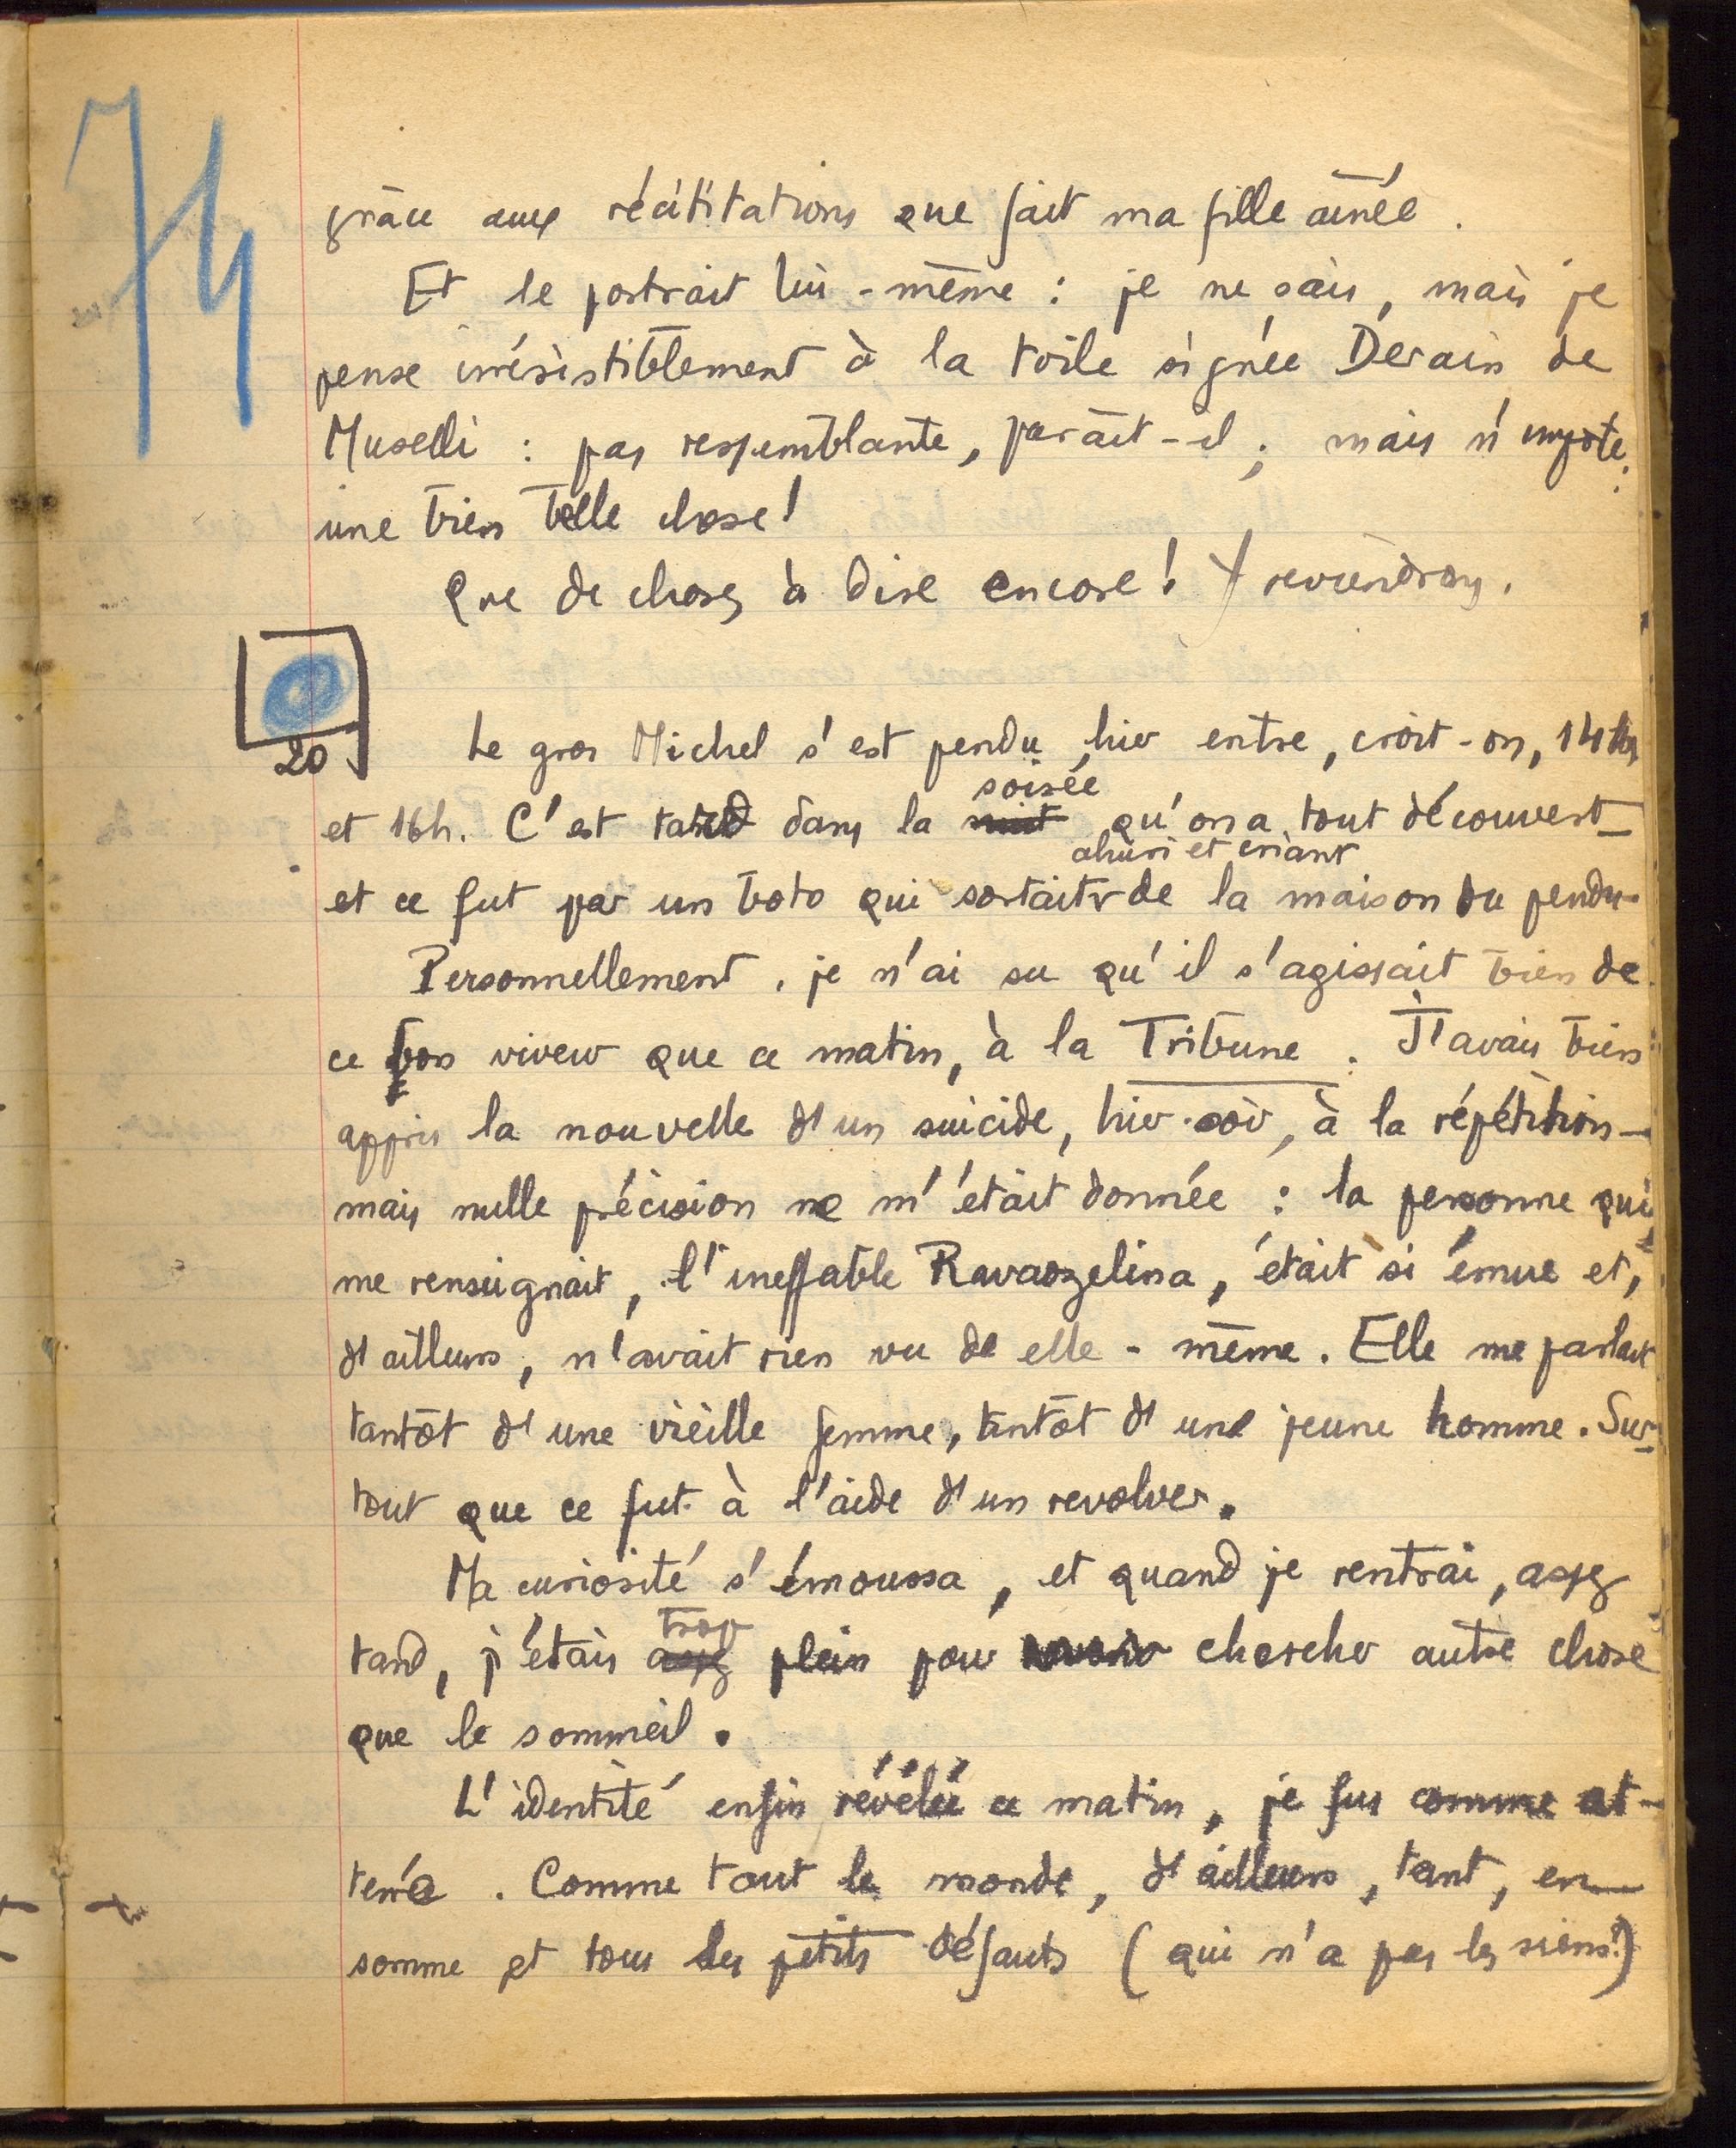 74
grâce aux récititations que fait ma fille aînée.
Et le portrait lui-même : je ne sais, mais je
pense irrésistiblement à la toile signée Derain de
Muselli : pas ressemblante, paraît-il ; mais n'importe :
une bien belle chose !
Que de choses à dire encore ! Y reviendrons.
20
Le gros Michel s'est pendu hier entre, croit-on, 14h
et 16h. C'est tard dans la nuit soirée qu'on a tout découvert –
et ce fut par un boto qui sortait ahuri et criant de la maison du pendu.
Personnellement, je n'ai su qu'il s'agissait bien de
ce bon viveur que ce matin, à la Tribune. J'avais bien
appris la nouvelle d'un suicide, hier soir, à la répétition –
mais nulle précision ne m'était donnée : la personne qui
me renseignait, l'ineffable Ravaozelina, était si émue et,
d'ailleurs, n'avait rien vu de elle-même. Elle me parlait
tantôt d'une vieille femme, tantôt d'une jeune homme. Sur-
tout que ce fut à l'aide d'un revolver.
Ma curiosité s'émoussa, et quand je rentrai, assez
tard, j'étais assez trop plein pour chercher autre chose
que le sommeil.
L'identité enfin révélée ce matin, je fus comme at-
terré. Comme tout le monde, d'ailleurs, tant, en
somme et tous les petits défauts (qui n'a pas les siens ?)